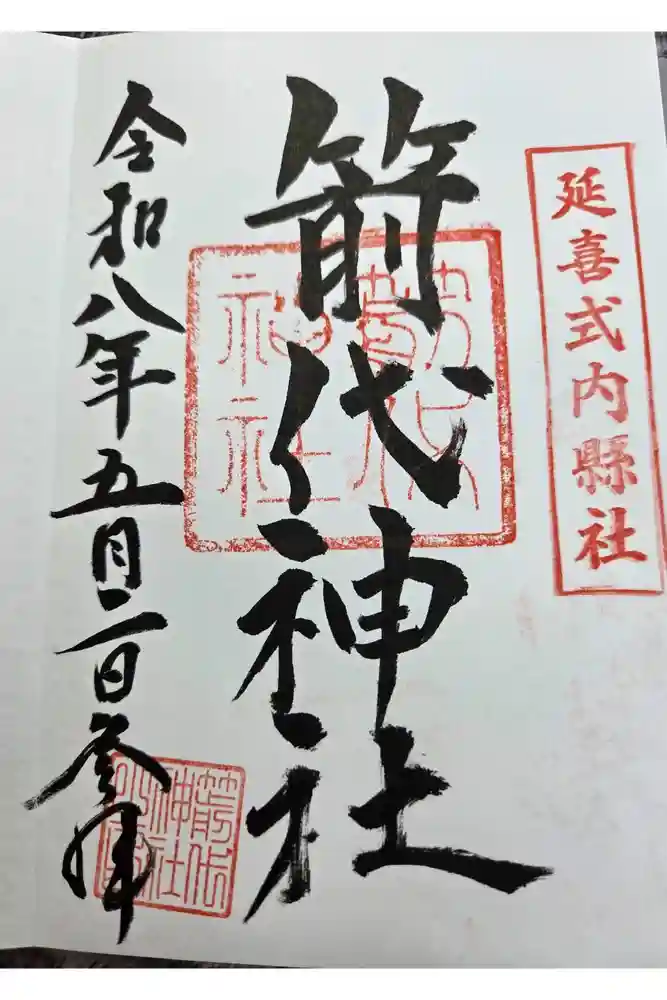 延喜式内縣社
箭代神社
令和八年五月二日参拝